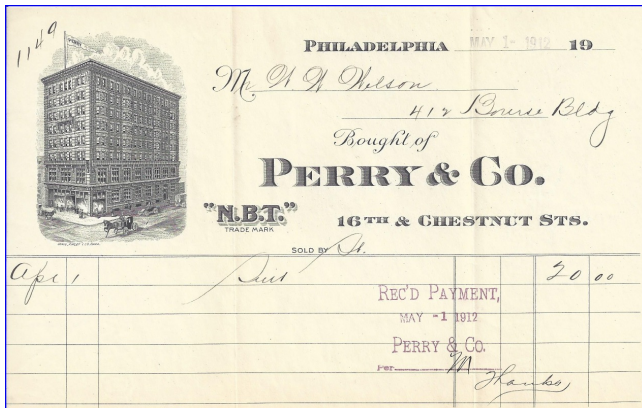 1149
PHILADELPHIA MAY 1- 1912 19
Mr W W Wilson
412 Bourse Bldg
Bought of
PERRY & CO.
"N.B.T."
TRADE MARK
16TH & CHESTNUT STS.
SOLD BY St.
Apr 1 Suit 20 00
REC'D PAYMENT,
MAY -1 1912
PERRY & CO.
Per M
Thanks